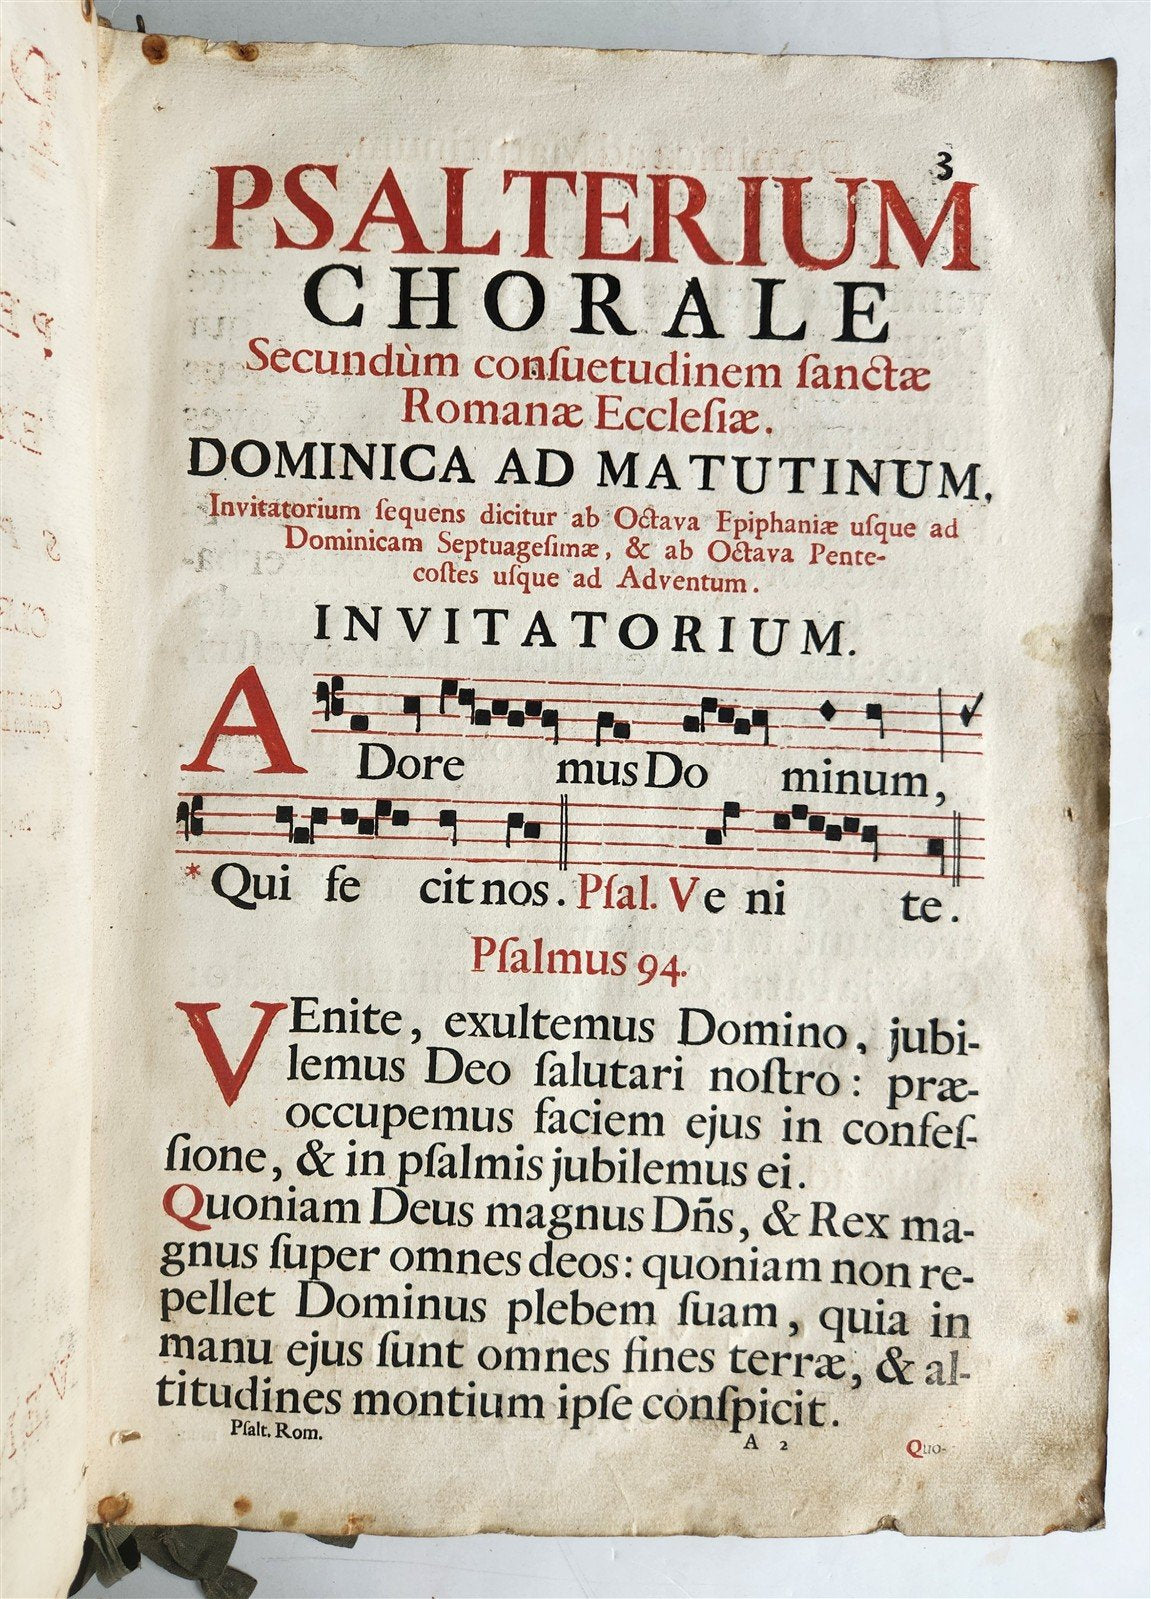 3
PSALTERIUM
CHORALE
Secundùm conſuetudinem ſanctæ
Romanæ Eccleſiæ.
DOMINICA AD MATUTINUM.
Invitatorium ſequens dicitur ab Octava Epiphaniæ uſque ad
Dominicam Septuageſimæ, & ab Octava Pente-
coſtes uſque ad Adventum.
INVITATORIUM.
ADore mus Do minum,
* Qui fe cit nos. Pſal. Ve ni te.
Pſalmus 94.
VEnite, exultemus Domino, jubi-
lemus Deo ſalutari noſtro: præ-
occupemus faciem ejus in confeſ-
ſione, & in pſalmis jubilemus ei.
Quoniam Deus magnus Dñs, & Rex ma-
gnus ſuper omnes deos: quoniam non re-
pellet Dominus plebem ſuam, quia in
manu ejus ſunt omnes fines terræ, & al-
titudines montium ipſe conſpicit.
Pſalt. Rom. A 2 Quo-